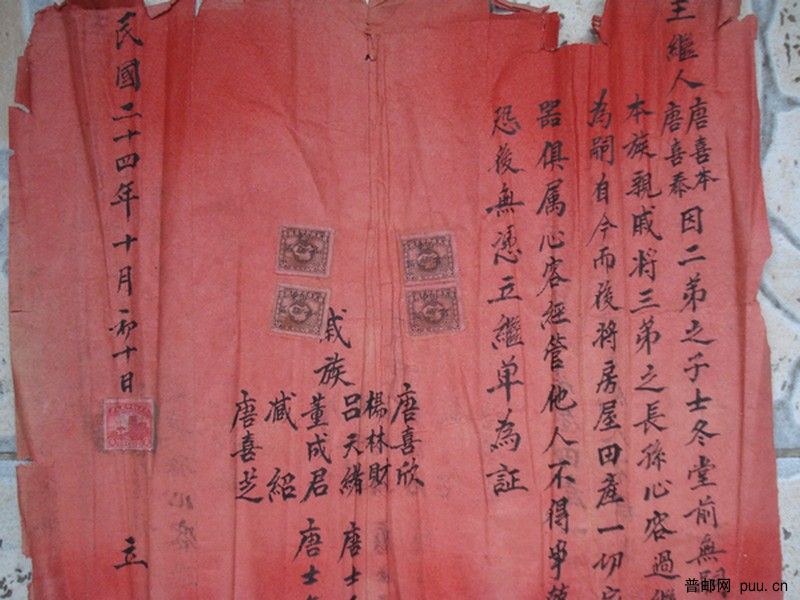 立繼人唐喜本
唐喜泰
因二弟之子士冬堂前無嗣
本族親戚將三弟之長孫心容過繼
為嗣自今而後將房屋田產一切家
器俱属心容經管他人不得爭
恐後無憑立繼單為証
戚族
唐喜欣
楊林財
呂天緒 唐士
董成君 唐士
臧紹
唐喜芝
民國二十四年十月初十日 立
普邮网 puu.cn